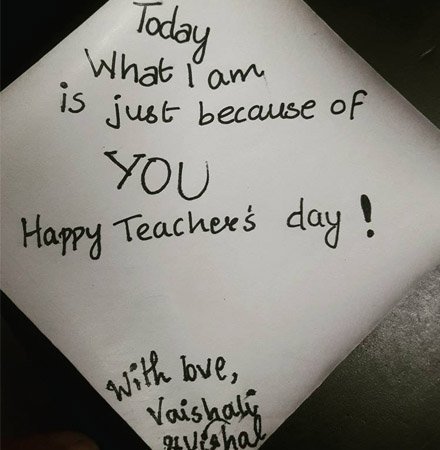 Today
What I am
is just because of
YOU
Happy Teacher's day !
With love,
Vaishali
&Vishal